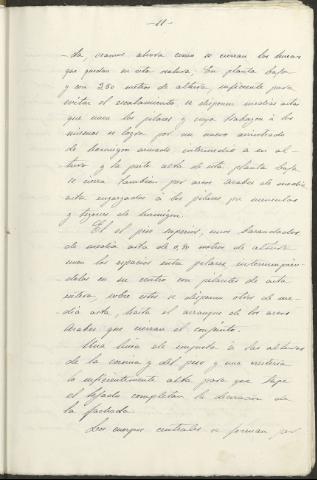 -11-
Ya veamos ahora como se cierran los huecos
que quedan en esta natura; En planta baja
y con 2'50 metros de altura, suficiente para
evitar el escalamiento, se disponen media asta
que unen los pilares y cuyo trabazon á los
mismos se logra por un nuevo
de hormigon armado intermedio a su al-
tura y la parte alta de esta planta baja
se cierra tambien por arcos arabes de media
asta engarzados á los pilares por
y tejares de hormigon.
En el piso superior, unas barandadas
de media asta de 0,80 metros de altura
unen los espacios entre pilares, interrumpien-
dolas en su centro con pilastres de asta
entera, sobre estos se disponen otros de me-
dia asta, hasta el arranque de los arcos
árabes que cierran el conjunto.
Una linea de imposta á las alturas
de la cornisa y del piso y una cresteria
lo suficientemente alta para que tape
el tejado completan la decoración de
la fachada.
Los cuerpos centrales se forman por